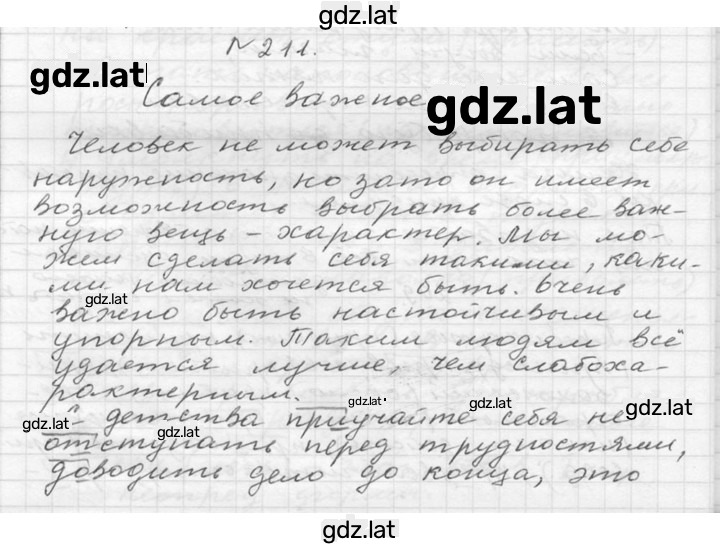 gdz.lat
№ 211.
gdz.lat
Самое важное
gdz.lat
Человек не может выбирать себе
наружность, но зато он имеет
возможность выбрать более важ-
ную вещь - характер. Мы мо-
жем сделать себя такими, каки-
ми нам хочется быть. Очень
gdz.lat
важно быть настойчивым и
упорным. Таким людям всё
удается лучше, чем слабоха-
рактерным.
gdz.lat
gdz.lat
gdz.lat
С детства приучайте себя не
gdz.lat
gdz.lat
отступать перед трудностями,
доводить дело до конца, это
gdz.lat